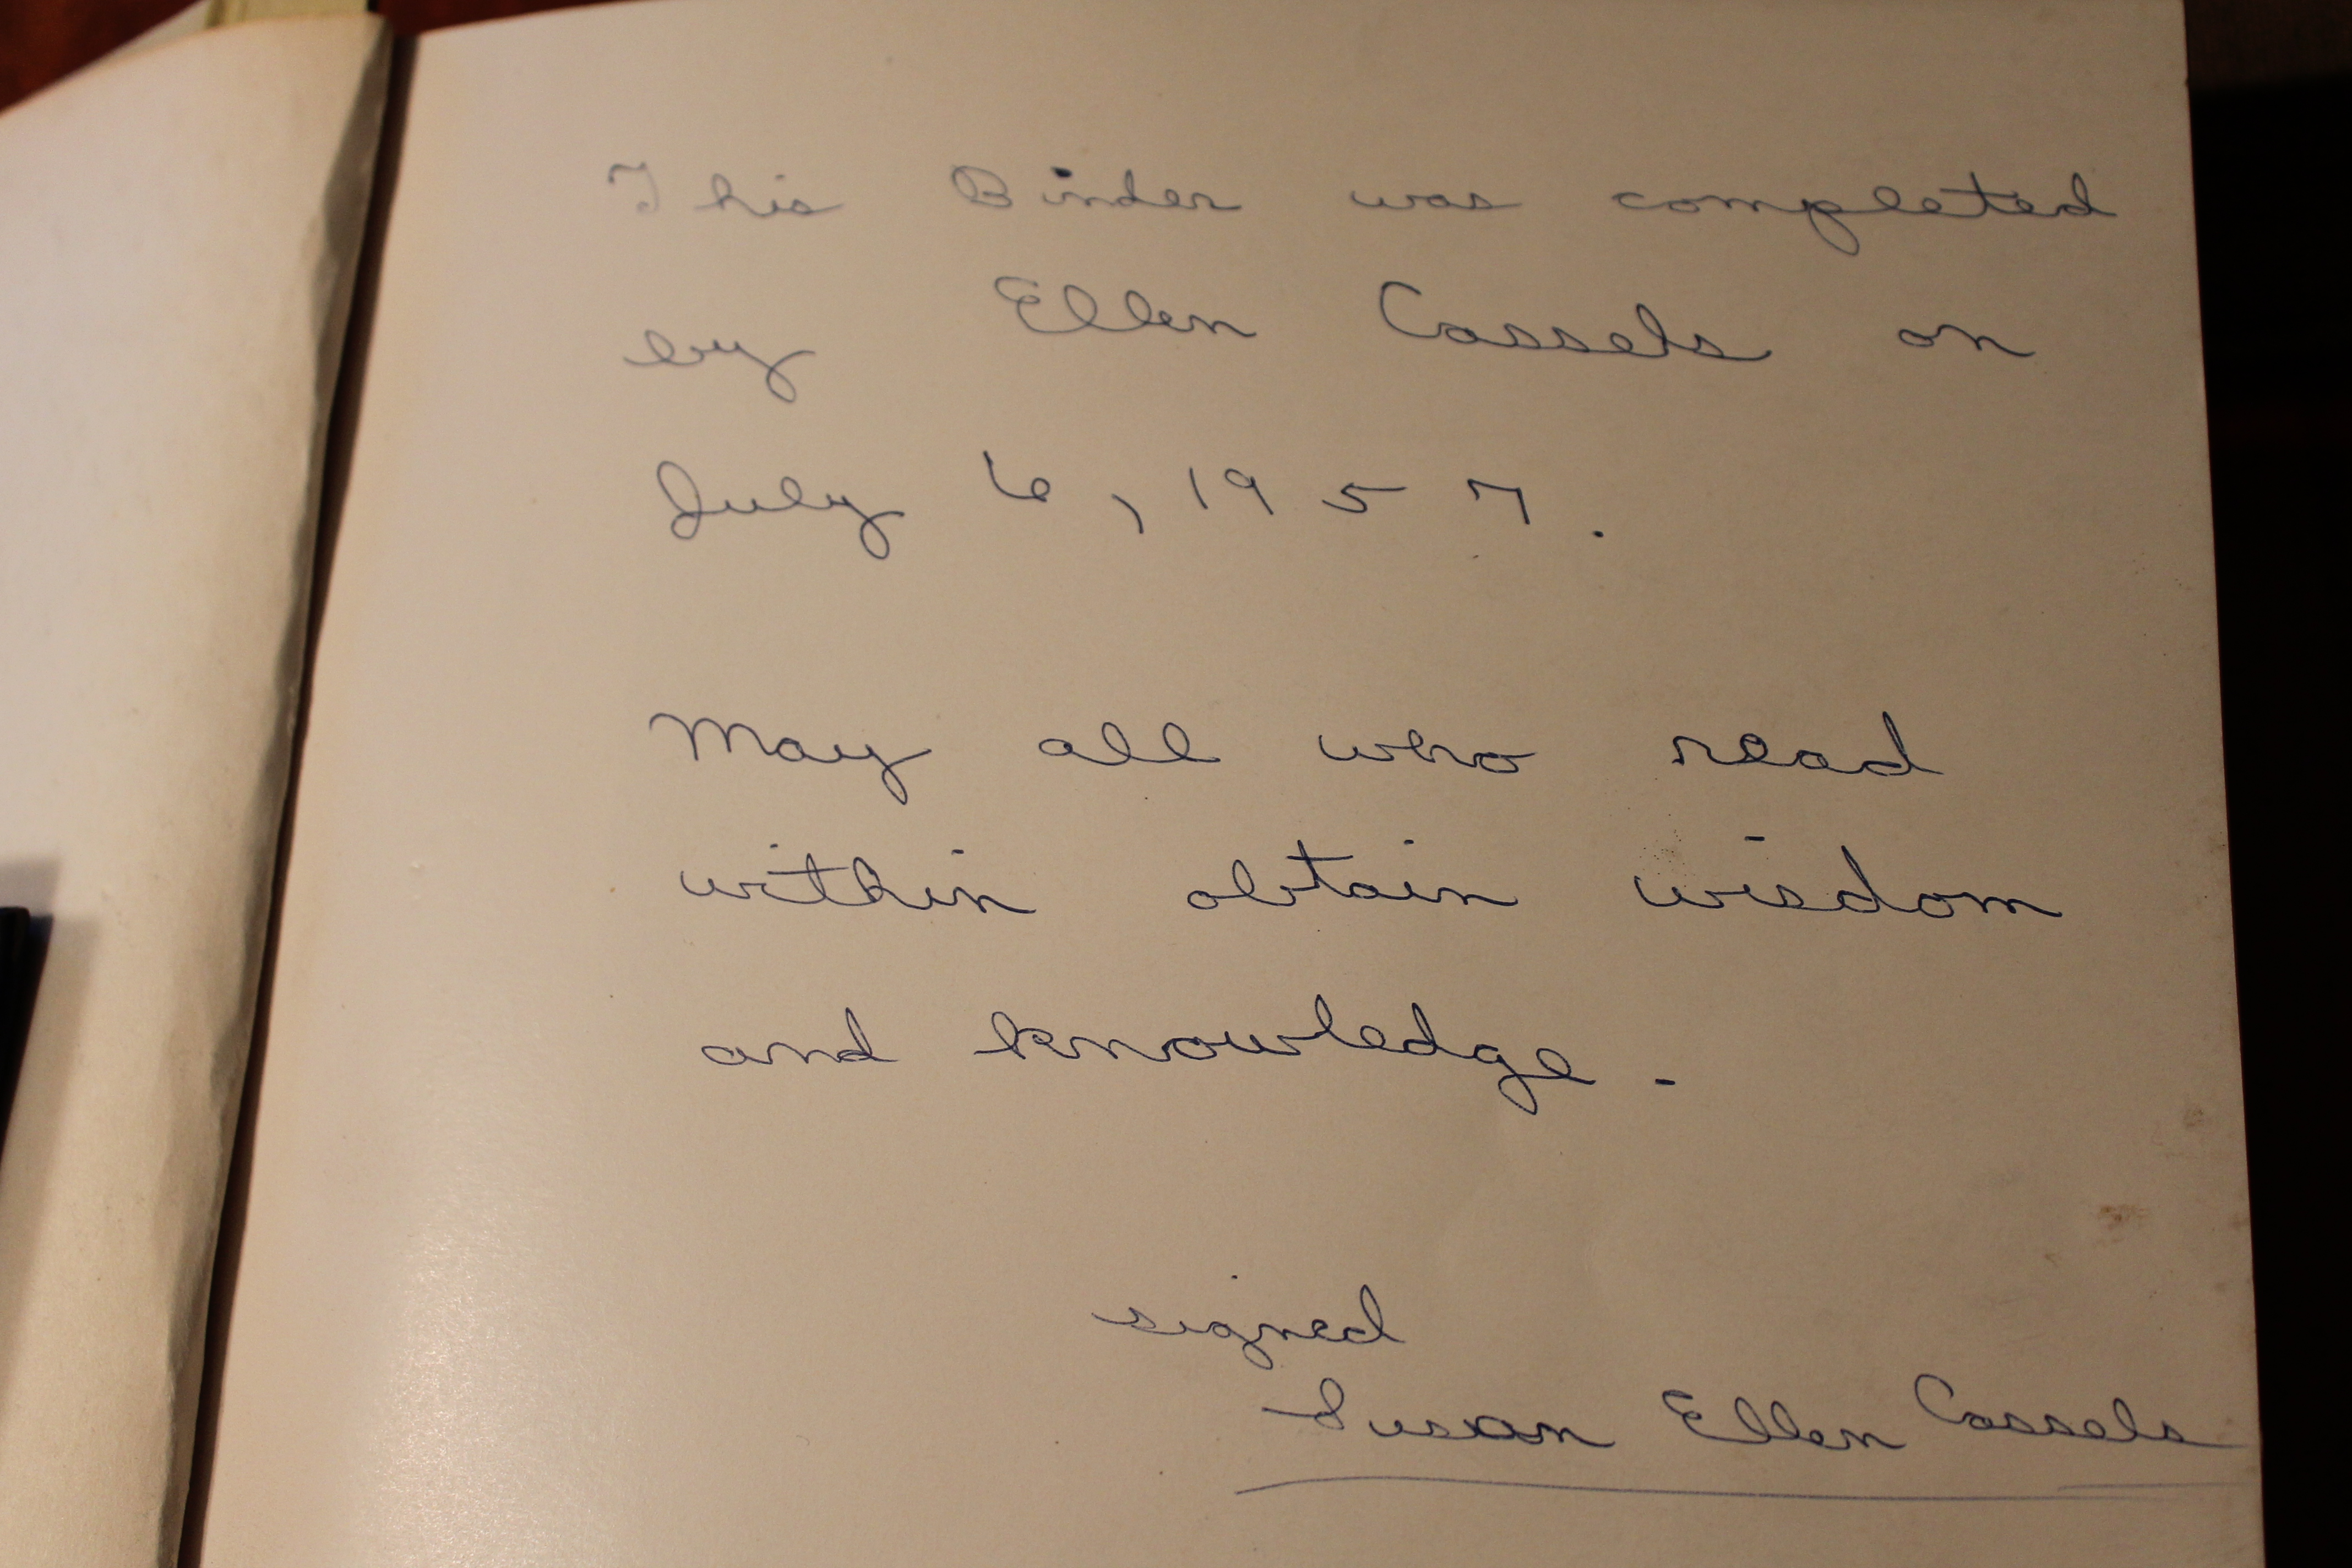 This Binder was completed
by Ellen Cassels on
July 6, 1957.
May all who read
within obtain wisdom
and knowledge.
signed
Susan Ellen Cassels